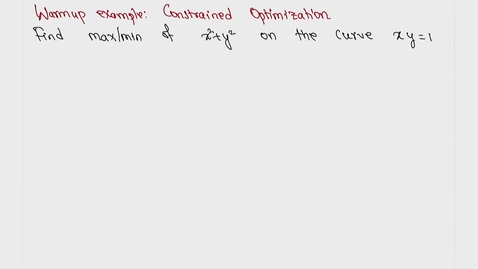 Warmup example: Constrained Optimization
Find max/min of x²+y² on the curve xy=1